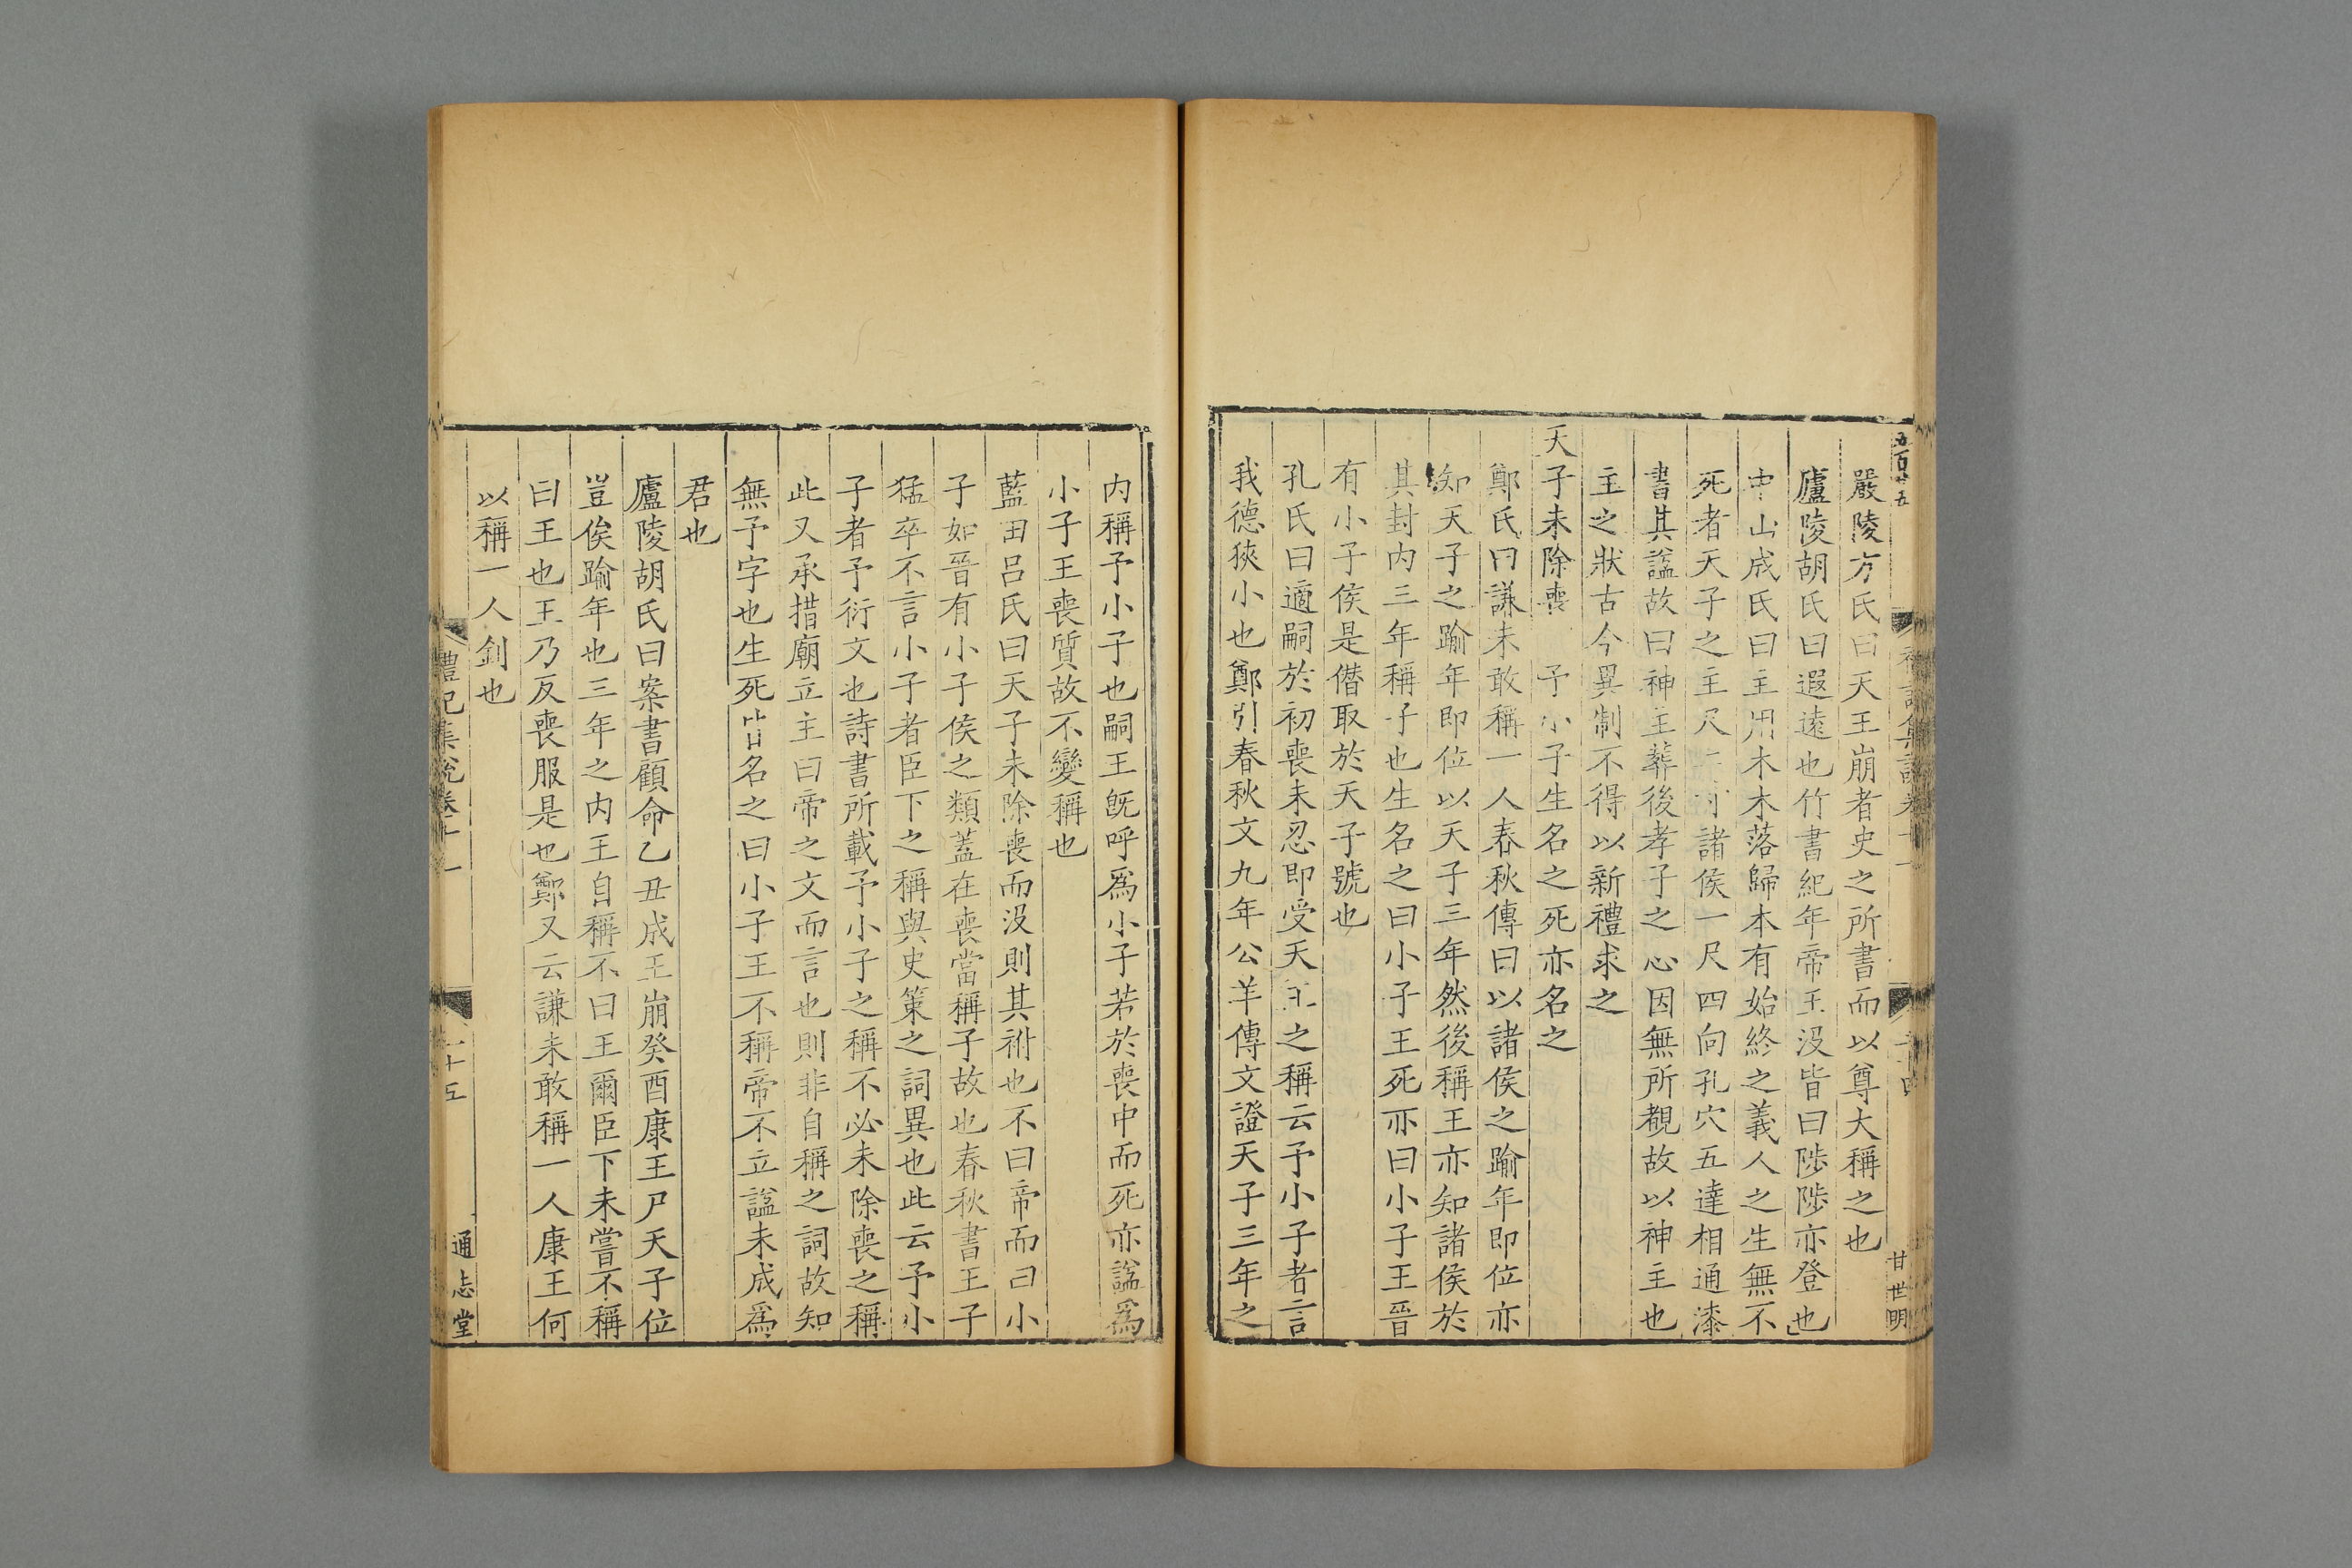 嚴陵方氏曰天王崩者史之所書而以尊大稱之也
廬陵胡氏曰遐遠也竹書紀年帝王没皆曰陟陟亦登也
中山成氏曰主用木木落歸本有始終之義人之生無不
死者天子之主尺二寸諸侯一尺四向孔穴五達相通漆
書其謚故曰神主葬後孝子之心因無所覩故以神主也
主之狀古今異制不得以新禮求之
天子未除喪 予小子生名之死亦名之
鄭氏曰謙未敢稱一人春秋傳曰以諸侯之踰年即位亦
知天子之踰年即位以天子三年然後稱王亦知諸侯於
其封内三年稱子也生名之曰小子王死亦曰小子王晉
有小子侯是僭取於天子號也
孔氏曰適嗣於初喪未忍即受天王之稱云予小子者言
我德狹小也鄭引春秋文九年公羊傳文證天子三年之
内稱予小子也嗣王既呼爲小子若於喪中而死亦謚爲
小子王喪質故不變稱也
藍田吕氏曰天子未除喪而没則其祔也不曰帝而曰小
子如晉有小子侯之類蓋在喪當稱子故也春秋書王子
猛卒不言小子者臣下之稱與史策之詞異也此云予小
子者予衍文也詩書所載予小子之稱不必未除喪之稱
此又承措廟立主曰帝之文而言也則非自稱之詞故知
無予字也生死皆名之曰小子王不稱帝不立謚未成爲
君也
廬陵胡氏曰案書顧命乙丑成王崩癸酉康王尸天子位
豈俟踰年也三年之内王自稱不曰王爾臣下未嘗不稱
曰王也王乃反喪服是也鄭又云謙未敢稱一人康王何
以稱一人釗也
五百廿五
二十四
甘世明
禮記集說卷十一
二十五
通志堂